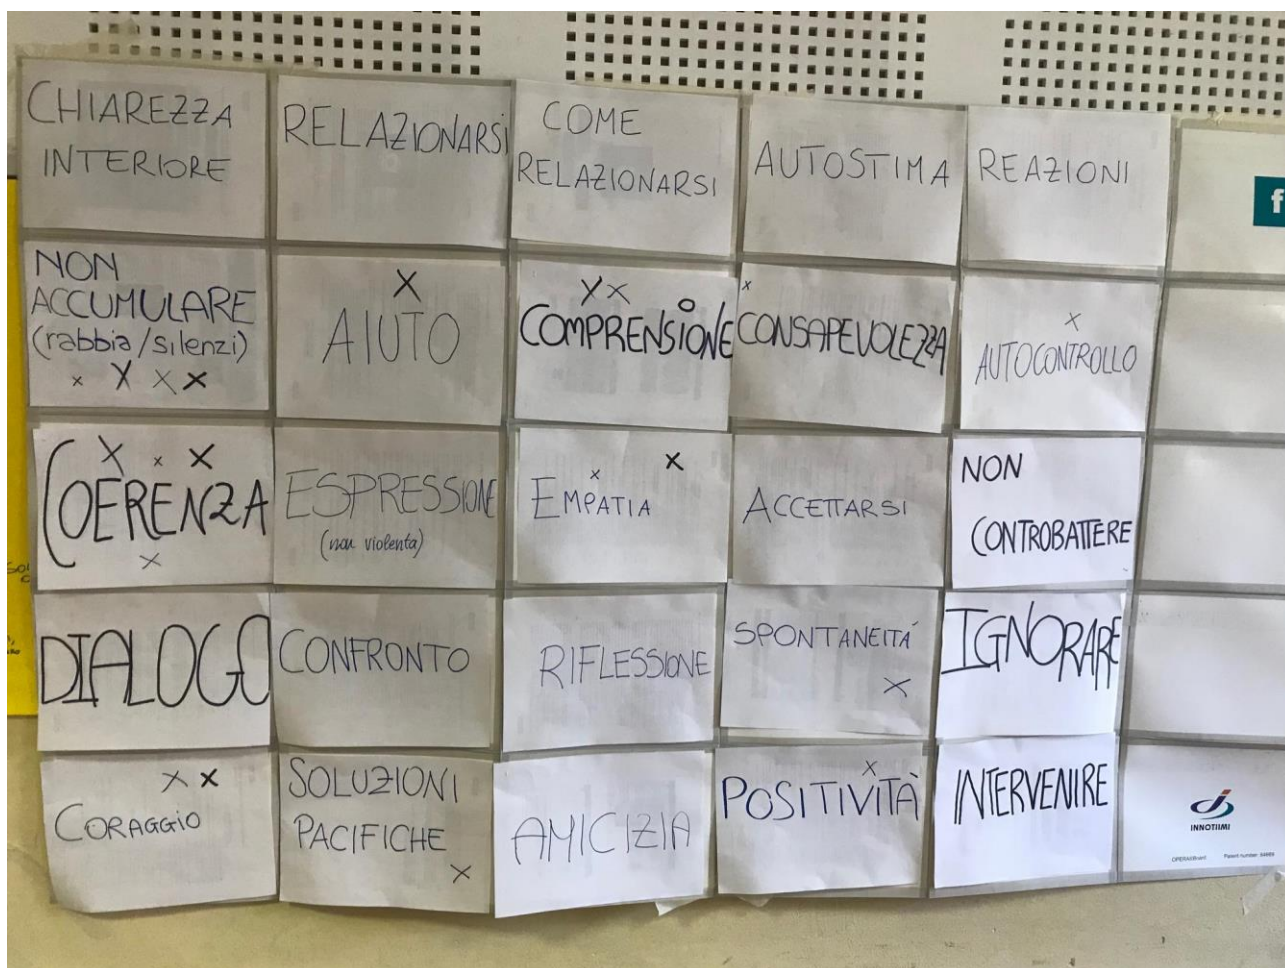 CHIAREZZA
INTERIORE
RELAZIONARSI
COME
RELAZIONARSI
AUTOSTIMA
REAZIONI
f
NON
ACCUMULARE
(rabbia/silenzi)
x X X X
X
AIUTO
X X
COMPRENSIONE
x
CONSAPEVOLEZZA
X
AUTOCONTROLLO
X x X
COERENZA
X
ESPRESSIONE
(non violenta)
x X
EMPATIA
ACCETTARSI
NON
CONTROBATTERE
DIALOGO
CONFRONTO
RIFLESSIONE
SPONTANEITÁ
X
IGNORARE
X X
CORAGGIO
SOLUZIONI
PACIFICHE
X
AMICIZIA
X
POSITIVITÀ
INTERVENIRE
INNOTIIMI